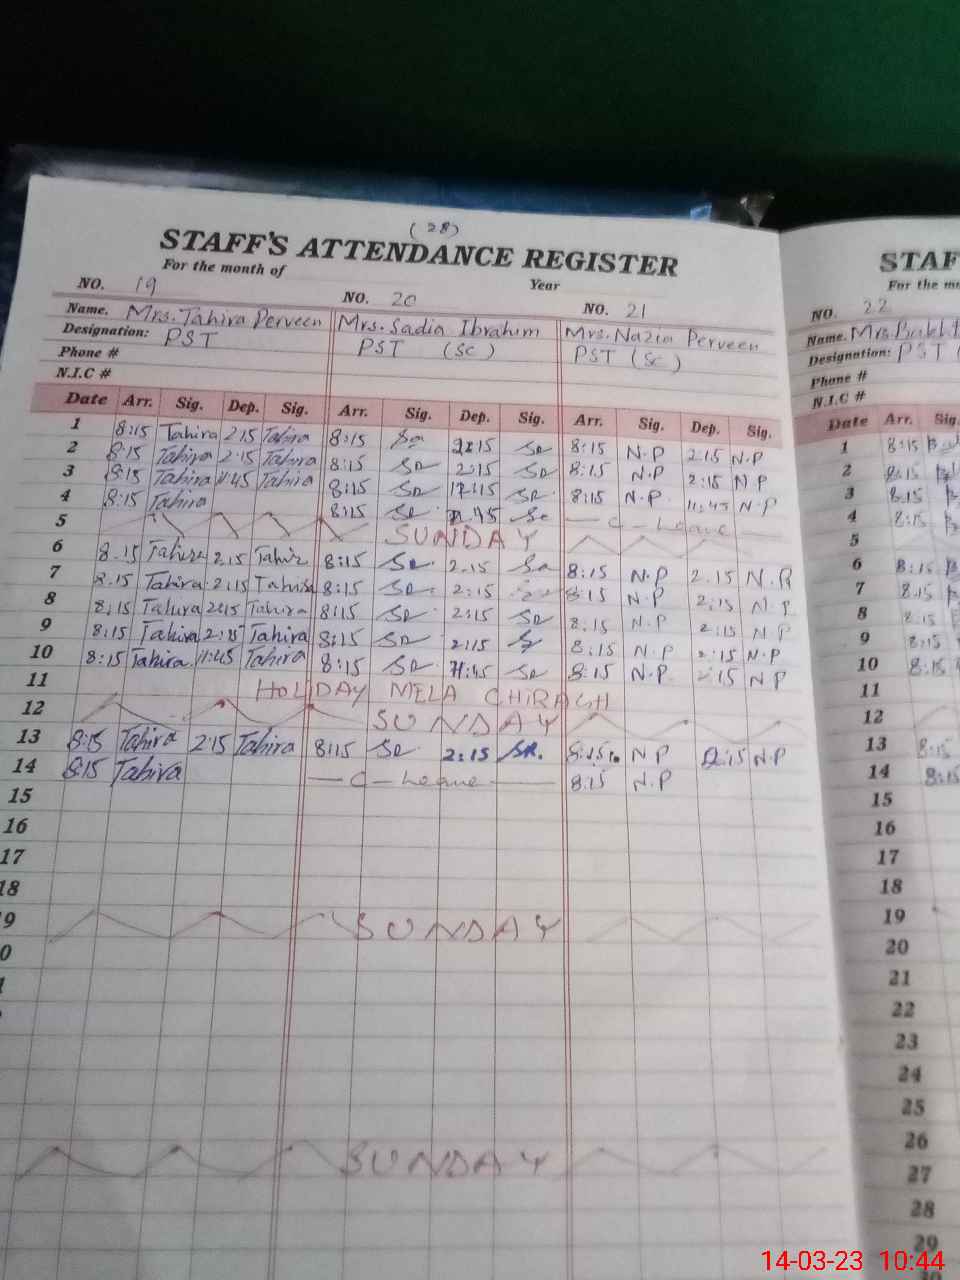 (28)
STAFF'S ATTENDANCE REGISTER
For the month of Year
NO. 19 NO. 20 NO. 21
Name. Mrs. Tahira Perveen Mrs. Sadia Ibrahim Mrs. Nazia Perveen
Designation: PST PST (SC) PST (SC)
Phone #
N.I.C #
Date Arr. Sig. Dep. Sig. Arr. Sig. Dep. Sig. Arr. Sig. Dep. Sig.
1 8:15 Tahira 2:15 Tahira 8:15 2:15 8:15 N.P 2:15 N.P
2 8:15 Tahira 2:15 Tahira 8:15 2:15 8:15 N.P 2:15 N.P
3 8:15 Tahira 11:45 Tahira 8:15 8:15 N.P 11:45 N.P
4 8:15 Tahira 8:15 — C - Leave —
5 SUNDAY
6 8:15 Tahira 2:15 Tahir 8:15 2:15 8:15 N.P 2:15 N.P
7 8:15 Tahira 2:15 Tahira 8:15 2:15 8:15 N.P 2:15 N.P
8 8:15 Tahira 2:15 Tahira 8:15 2:15 8:15 N.P 2:15 N.P
9 8:15 Tahira 2:15 Tahira 8:15 2:15 8:15 N.P 2:15 N.P
10 8:15 Tahira 11:45 Tahira 8:15 8:15 N.P 2:15 N.P
11 HOLIDAY MELA CHIRAGH
12 SUNDAY
13 8:15 Tahira 2:15 Tahira 8:15 SR 2:15 SR. 8:15 N.P 2:15 N.P
14 8:15 Tahira — C - Leave — 8:15 N.P
15
16
17
18
9 SUNDAY
0
SUNDAY
STAF
For the m
NO. 22
Name. Mrs.
Designation: PST
Phone #
N.I.C #
Date Arr. Sig
1 8:15
2 8:15
3 8:15
4 8:15
5
6 8:15
7 8:15
8 8:15
9 8:15
10 8:15
11
12
13 8:15
14 8:15
15
16
17
18
19
20
21
22
23
24
25
26
27
28
29
14-03-23 10:44